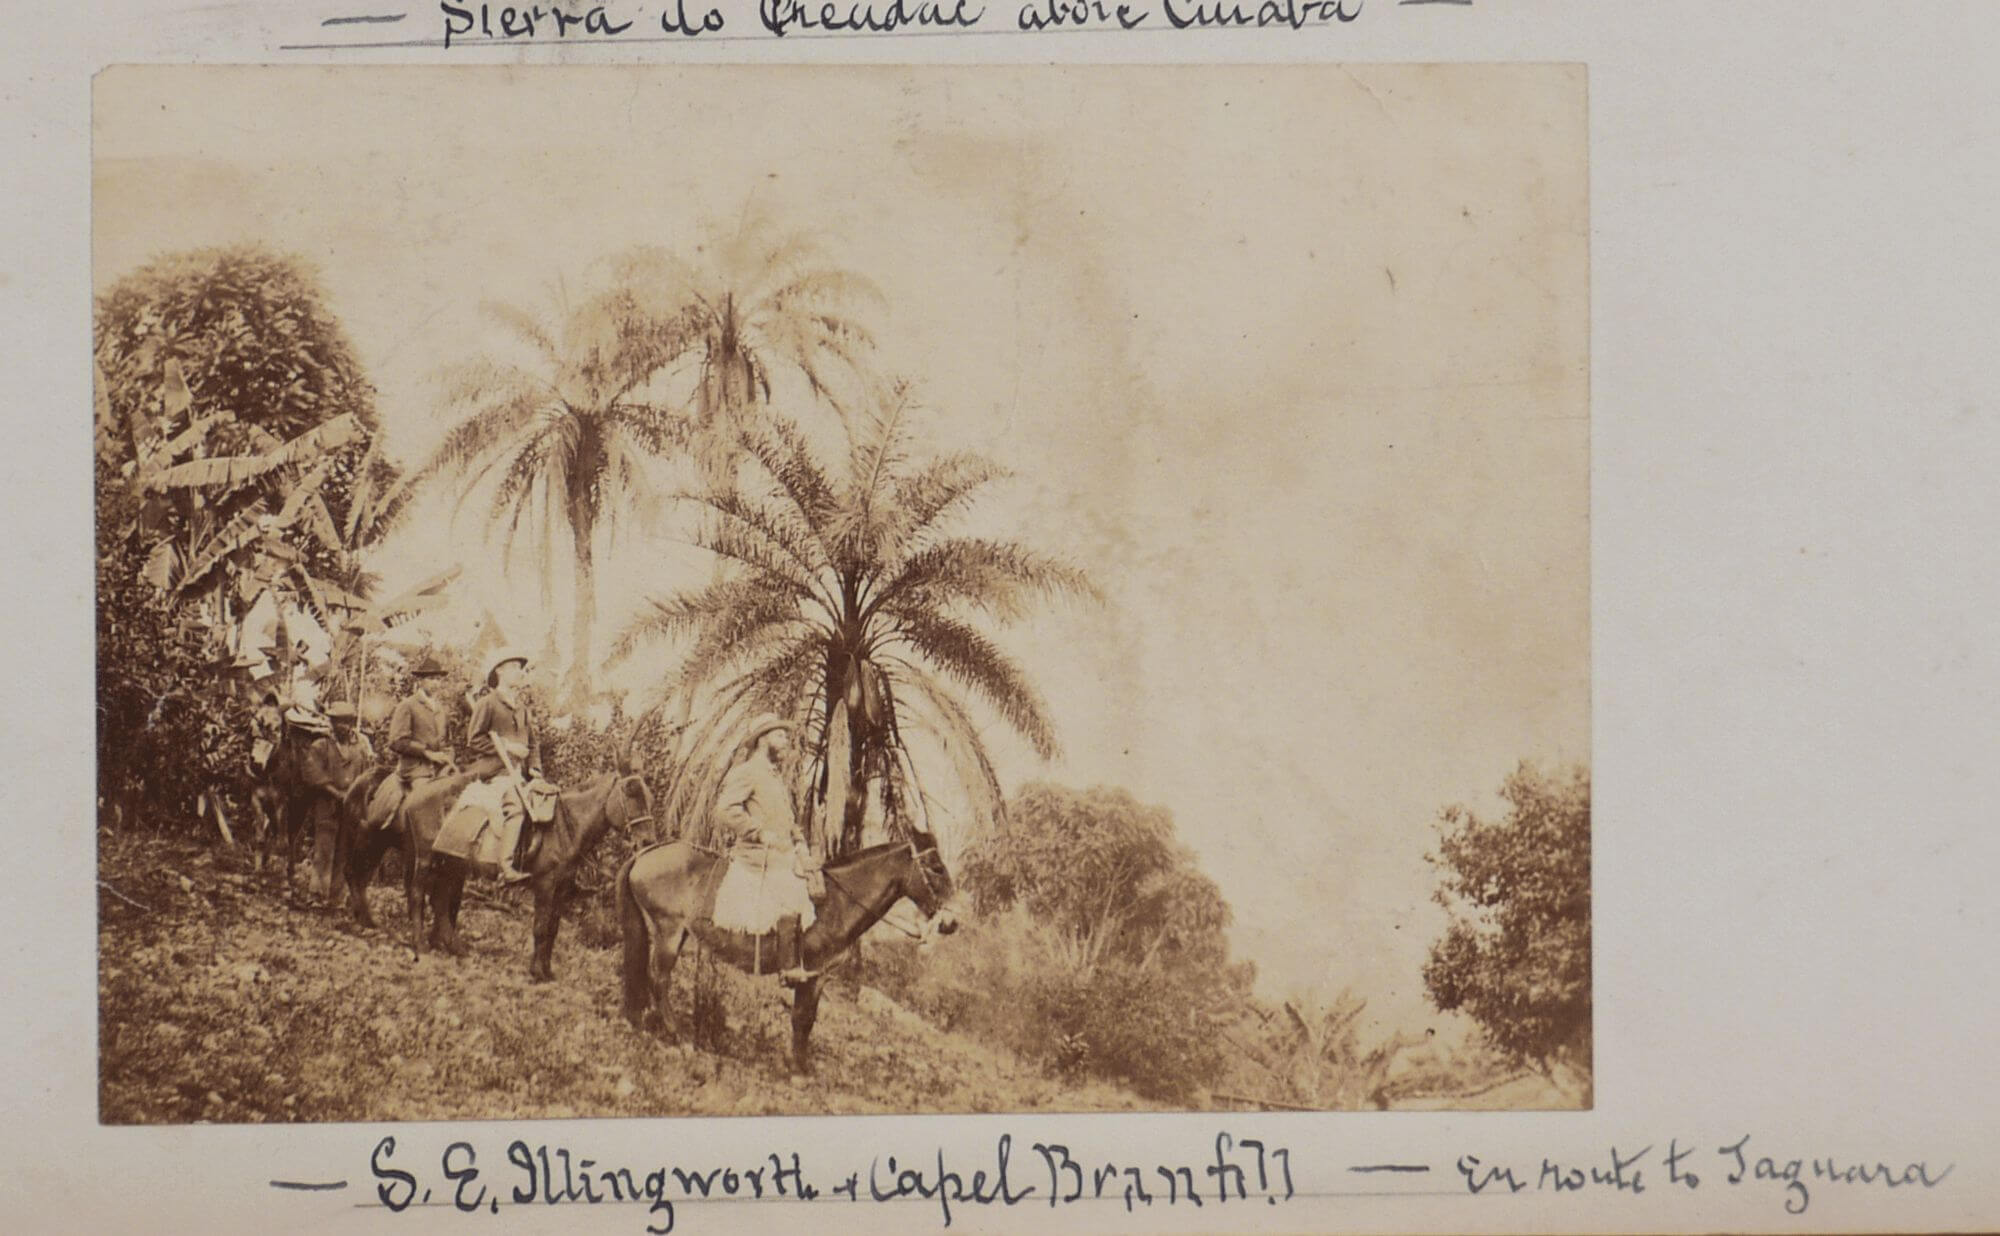 — Sierra do above Cuiaba —
— S. E. Illingworth + Capel Branfill — En route to Jaguara